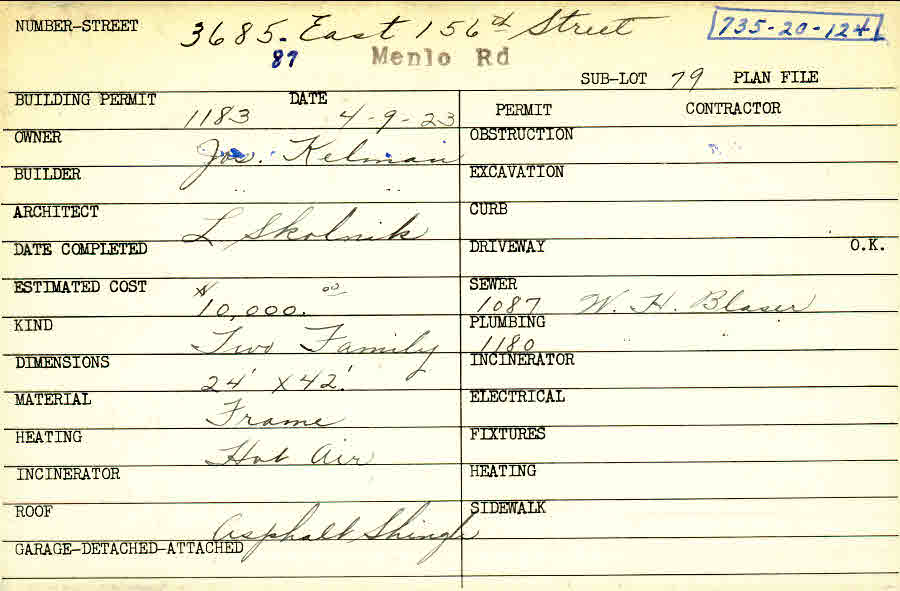 NUMBER-STREET 3685- East 156th Street 735-20-124
87 Menlo Rd
SUB-LOT 79 PLAN FILE
BUILDING PERMIT 1183 DATE 4-9-23
PERMIT CONTRACTOR
OWNER Jos. Kelman
OBSTRUCTION
BUILDER " "
EXCAVATION
ARCHITECT L Skolnik
CURB
DATE COMPLETED
DRIVEWAY O.K.
ESTIMATED COST $10,000.00
SEWER 1087 W. H. Blaser
KIND Two Family
PLUMBING 1180
DIMENSIONS 24' x 42'
INCINERATOR
MATERIAL Frame
ELECTRICAL
HEATING Hot Air
FIXTURES
INCINERATOR
HEATING
ROOF Asphalt Shingle
SIDEWALK
GARAGE-DETACHED-ATTACHED